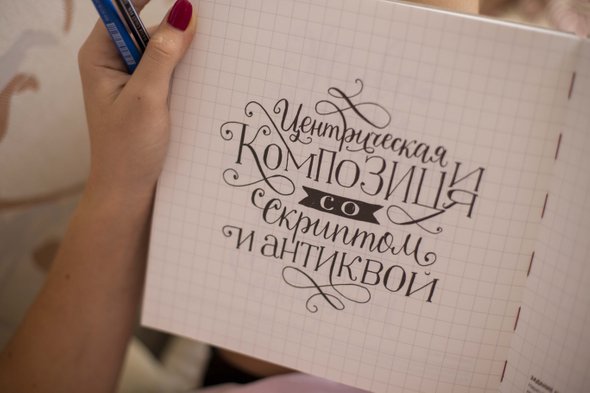 Центрическая
Композиция
со
скриптом
и антиквой